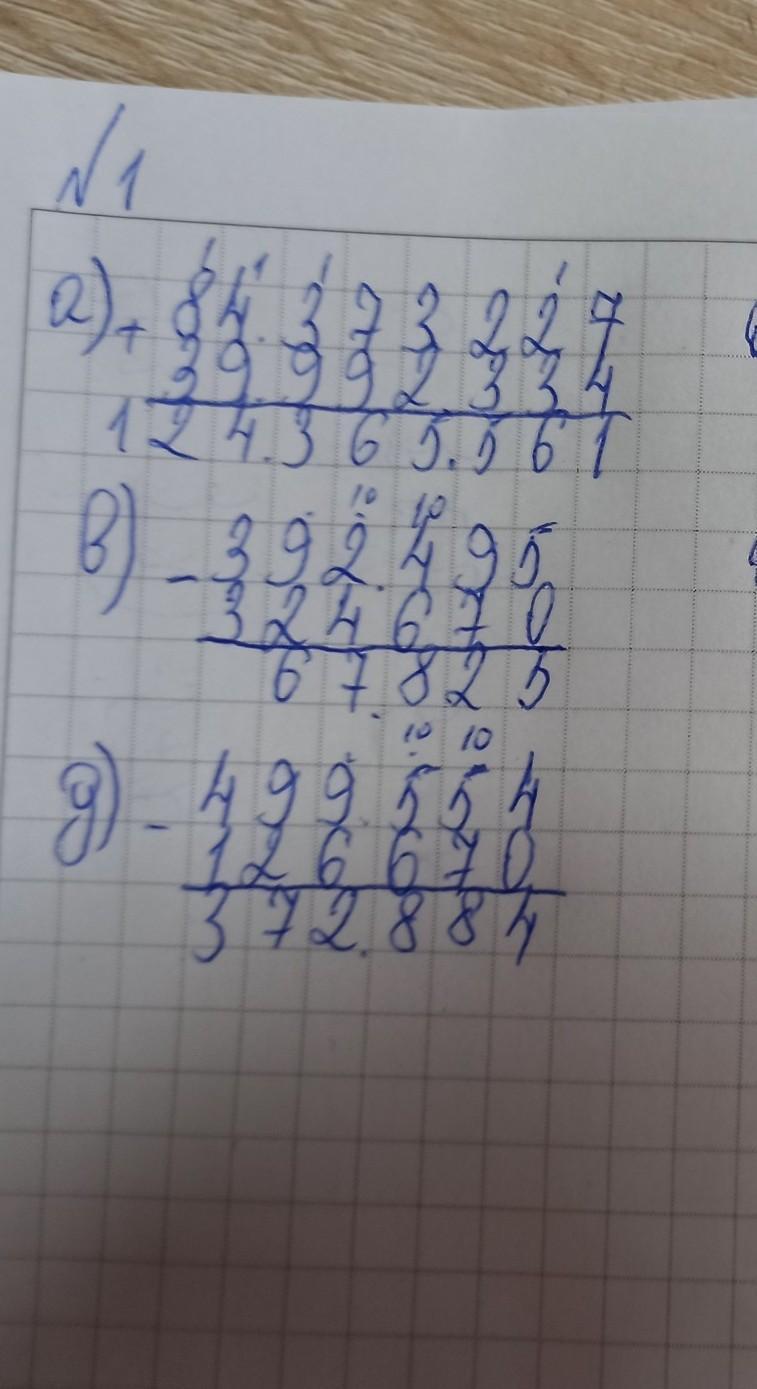 №1
1 1 1 1
а) + 84.373.227
39.992.334
124.365.561
10 10
в) - 392.495
324670
67.825
10 10
д) - 499554
126670
372.884